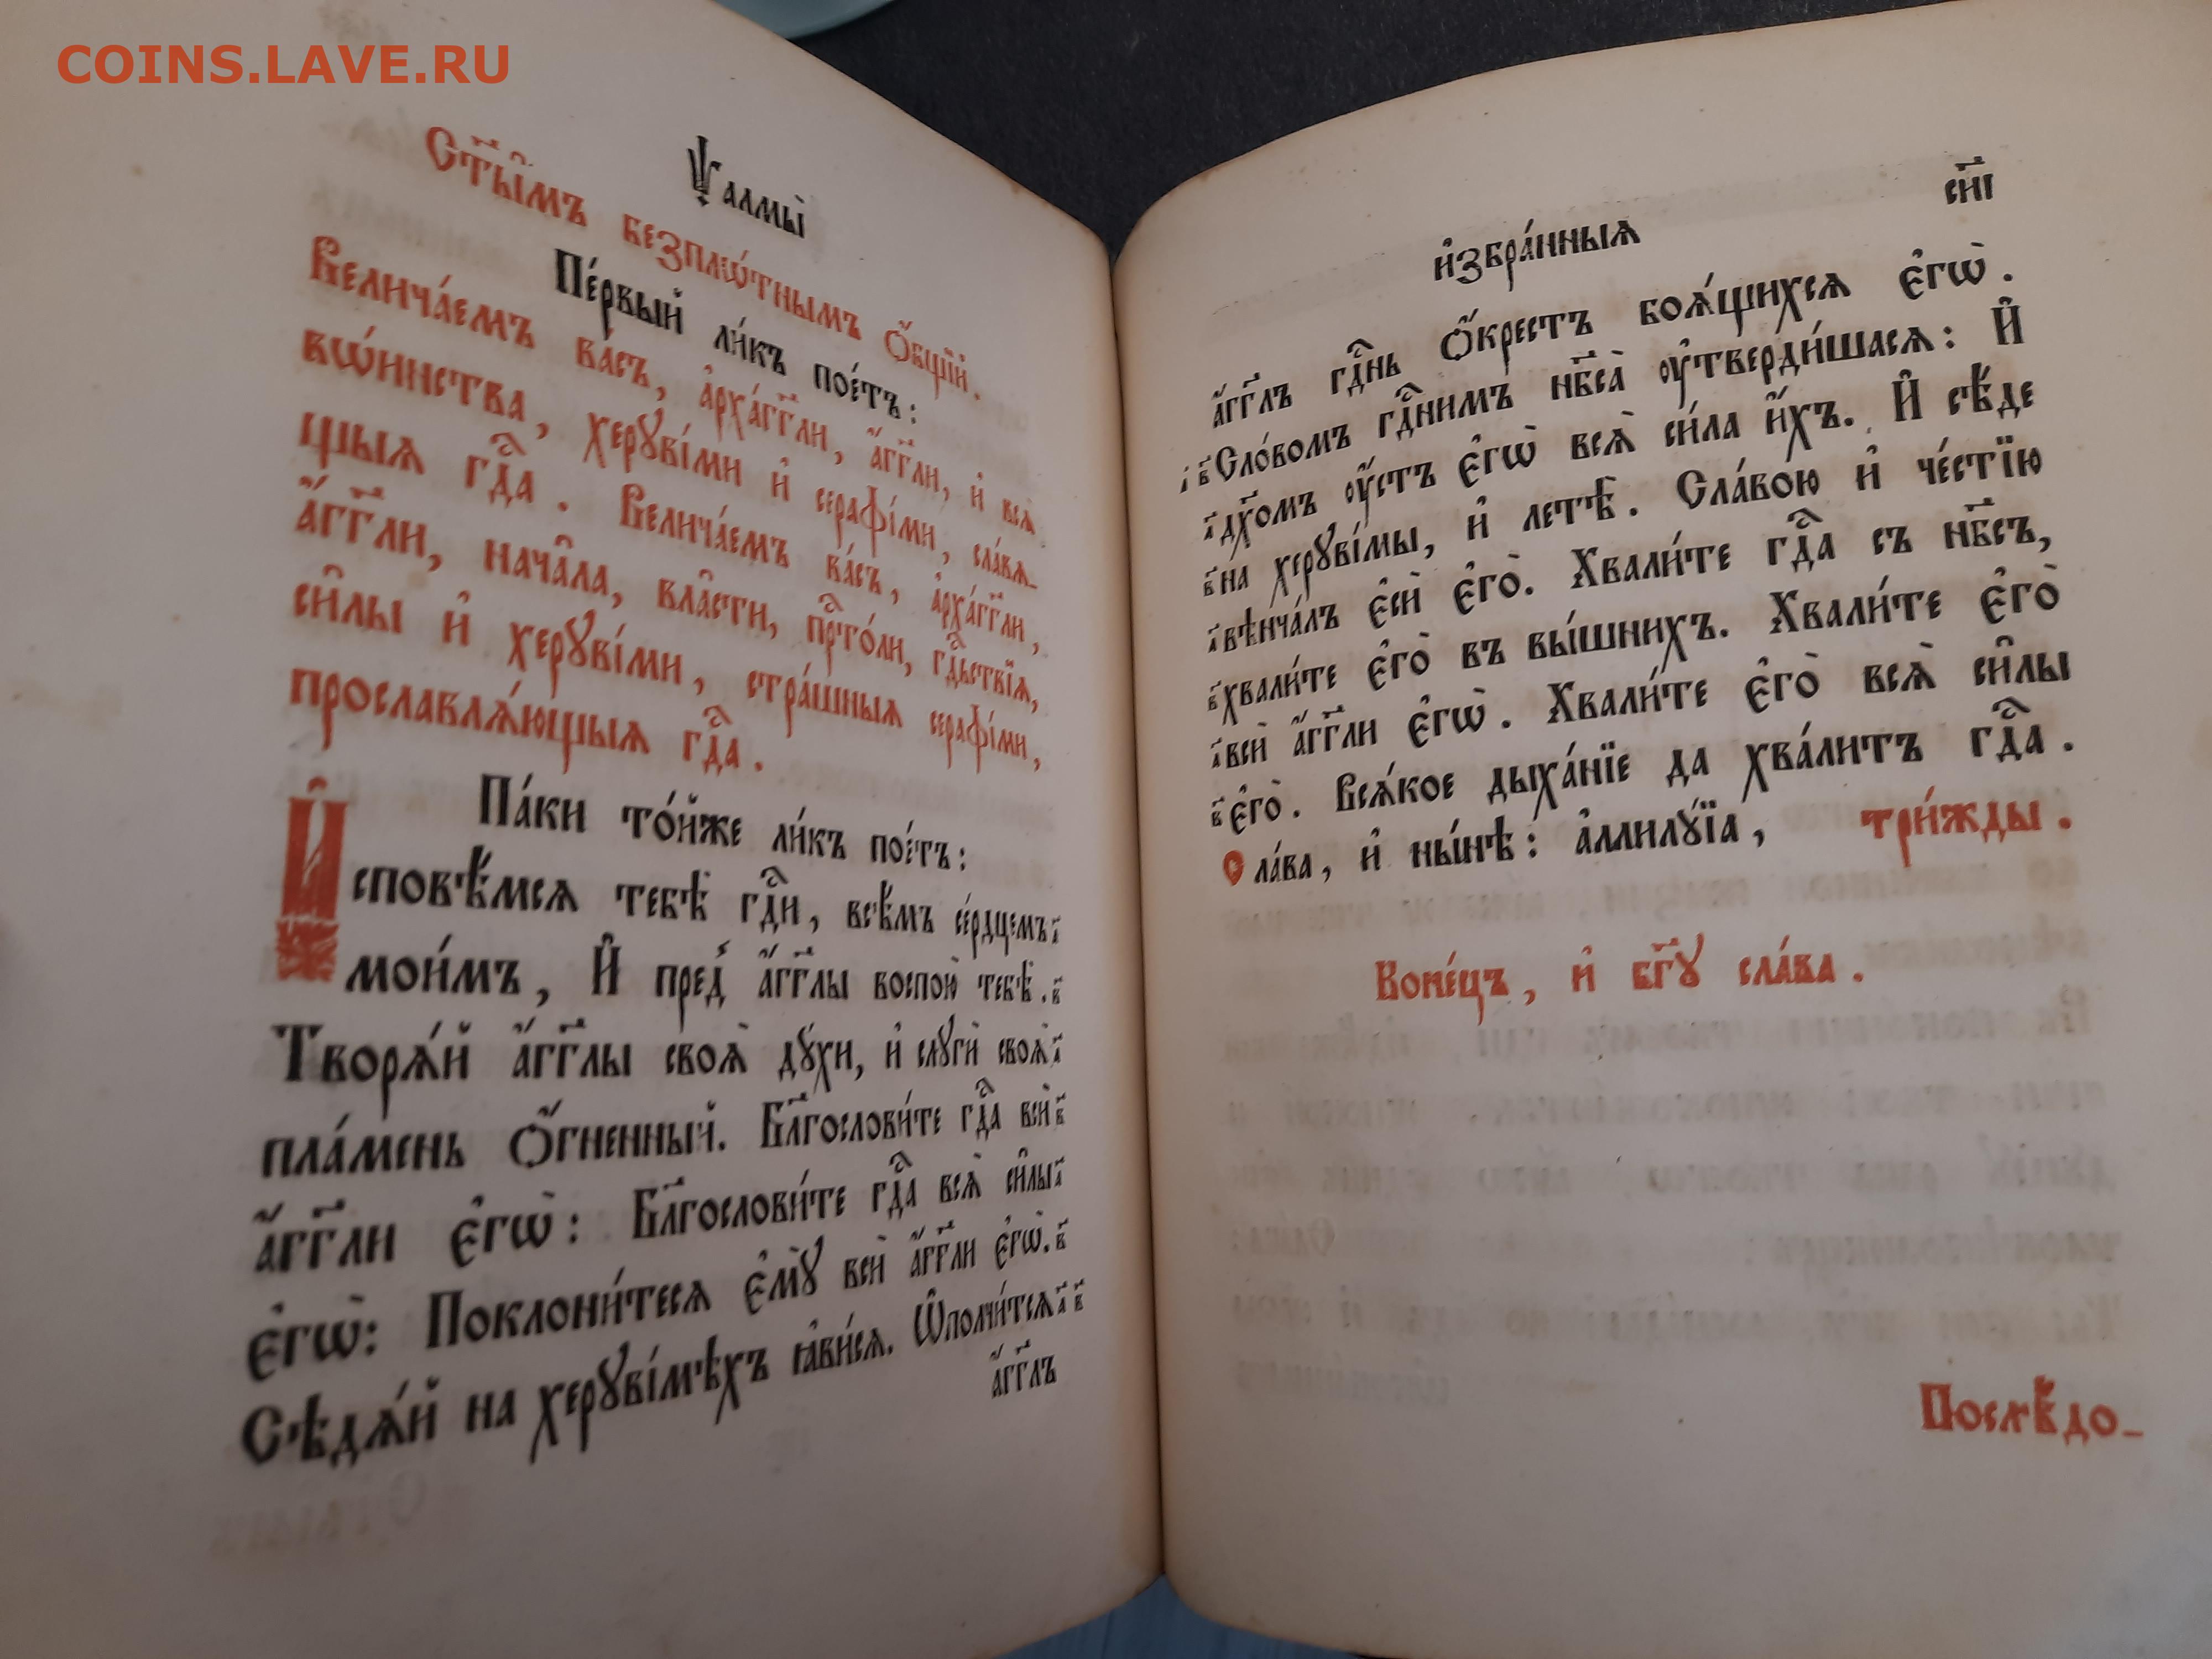 COINS.LAVE.RU
Ѱалмы̀
Ст҃ы̑мъ безпло́тнымъ Ѻ҆́бщїй.
Пе́рвый ли́къ пое́тъ:
Велича́емъ ва́съ, а҆рха́гг҃ли, а҆́гг҃ли, и҆ всѧ̀
вѡ́инства, херꙋві́ми и҆ серафі́ми, сла́вѧ_
щыѧ гдⷭ҇а. Велича́емъ ва́съ, а҆рха́гг҃ли,
а҆́гг҃ли, нача̑ла, вла̑сти, прⷭ҇то́ли, гдⷭ҇ьствїѧ,
си̑лы и҆ херꙋві́ми, стра́шныѧ серафі́ми,
прославлѧ́ющыѧ гдⷭ҇а.
Па́ки то́йже ли́къ пое́тъ:
И҆сповѣ́мсѧ тебѣ̀ гдⷭ҇и, всѣ́мъ се́рдцемъ а҃
мои́мъ, И҆ пред̾ а҆́гг҃лы воспою̀ тебѣ̀. в҃
Творѧ́й а҆́гг҃лы своѧ̀ дꙋ́хи, и҆ слꙋгѝ своѧ̀ а҃
пла́мень Ѻ҆́гненный. Бл҃гослови́те гдⷭ҇а всѝ в҃
а҆́гг҃ли є҆гѡ̀: Бл҃гослови́те гдⷭ҇а всѧ̀ си̑лы а҃
є҆гѡ̀: Поклони́тесѧ є҆мꙋ̀ всѝ а҆́гг҃ли є҆гѡ̀. в҃
Сѣдѧ́й на херꙋві́мѣхъ ꙗ҆ви́сѧ. Ѡ҆полчи́тсѧ а҃ в҃
а҆́гг҃лъ
и҆збра́нныѧ
сн҃і
а҆́гг҃лъ гдⷭ҇нь Ѻ҆́крестъ боѧ́щихсѧ є҆гѡ̀.
а҃ в҃ Сло́вомъ гдⷭ҇нимъ нб҃са̀ ᲂу҆тверди́шасѧ: И҆
а҃ дх҃омъ ᲂу҆́стъ є҆гѡ̀ всѧ̀ си́ла и҆́хъ. И҆ сѣ́де
в҃ на херꙋві́мы, и҆ летѣ̀. Сла́вою и҆ че́стїю
а҃ вѣнча́лъ є҆сѝ є҆го̀. Хвали́те гдⷭ҇а съ нб҃съ,
в҃ хвали́те є҆го̀ въ вы́шнихъ. Хвали́те є҆го̀
а҃ всѝ а҆́гг҃ли є҆гѡ̀. Хвали́те є҆го̀ всѧ̀ си̑лы
в҃ є҆го̀. Всѧ́кое дыха́нїе да хва́литъ гдⷭ҇а.
Сла́ва, и҆ ны́нѣ: а҆ллилꙋ́їа, три́жды.
Коне́цъ, и҆ бг҃ꙋ сла́ва.
Послѣ́до_